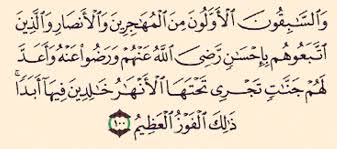 وَالسَّابِقُونَ الْأَوَّلُونَ مِنَ الْمُهَاجِرِينَ وَالْأَنصَارِ وَالَّذِينَ
اتَّبَعُوهُم بِإِحْسَانٍ رَّضِيَ اللَّهُ عَنْهُمْ وَرَضُوا عَنْهُ وَأَعَدَّ
لَهُمْ جَنَّاتٍ تَجْرِي تَحْتَهَا الْأَنْهَارُ خَالِدِينَ فِيهَا أَبَدًا ۚ
ذَٰلِكَ الْفَوْزُ الْعَظِيمُ ١٠٠